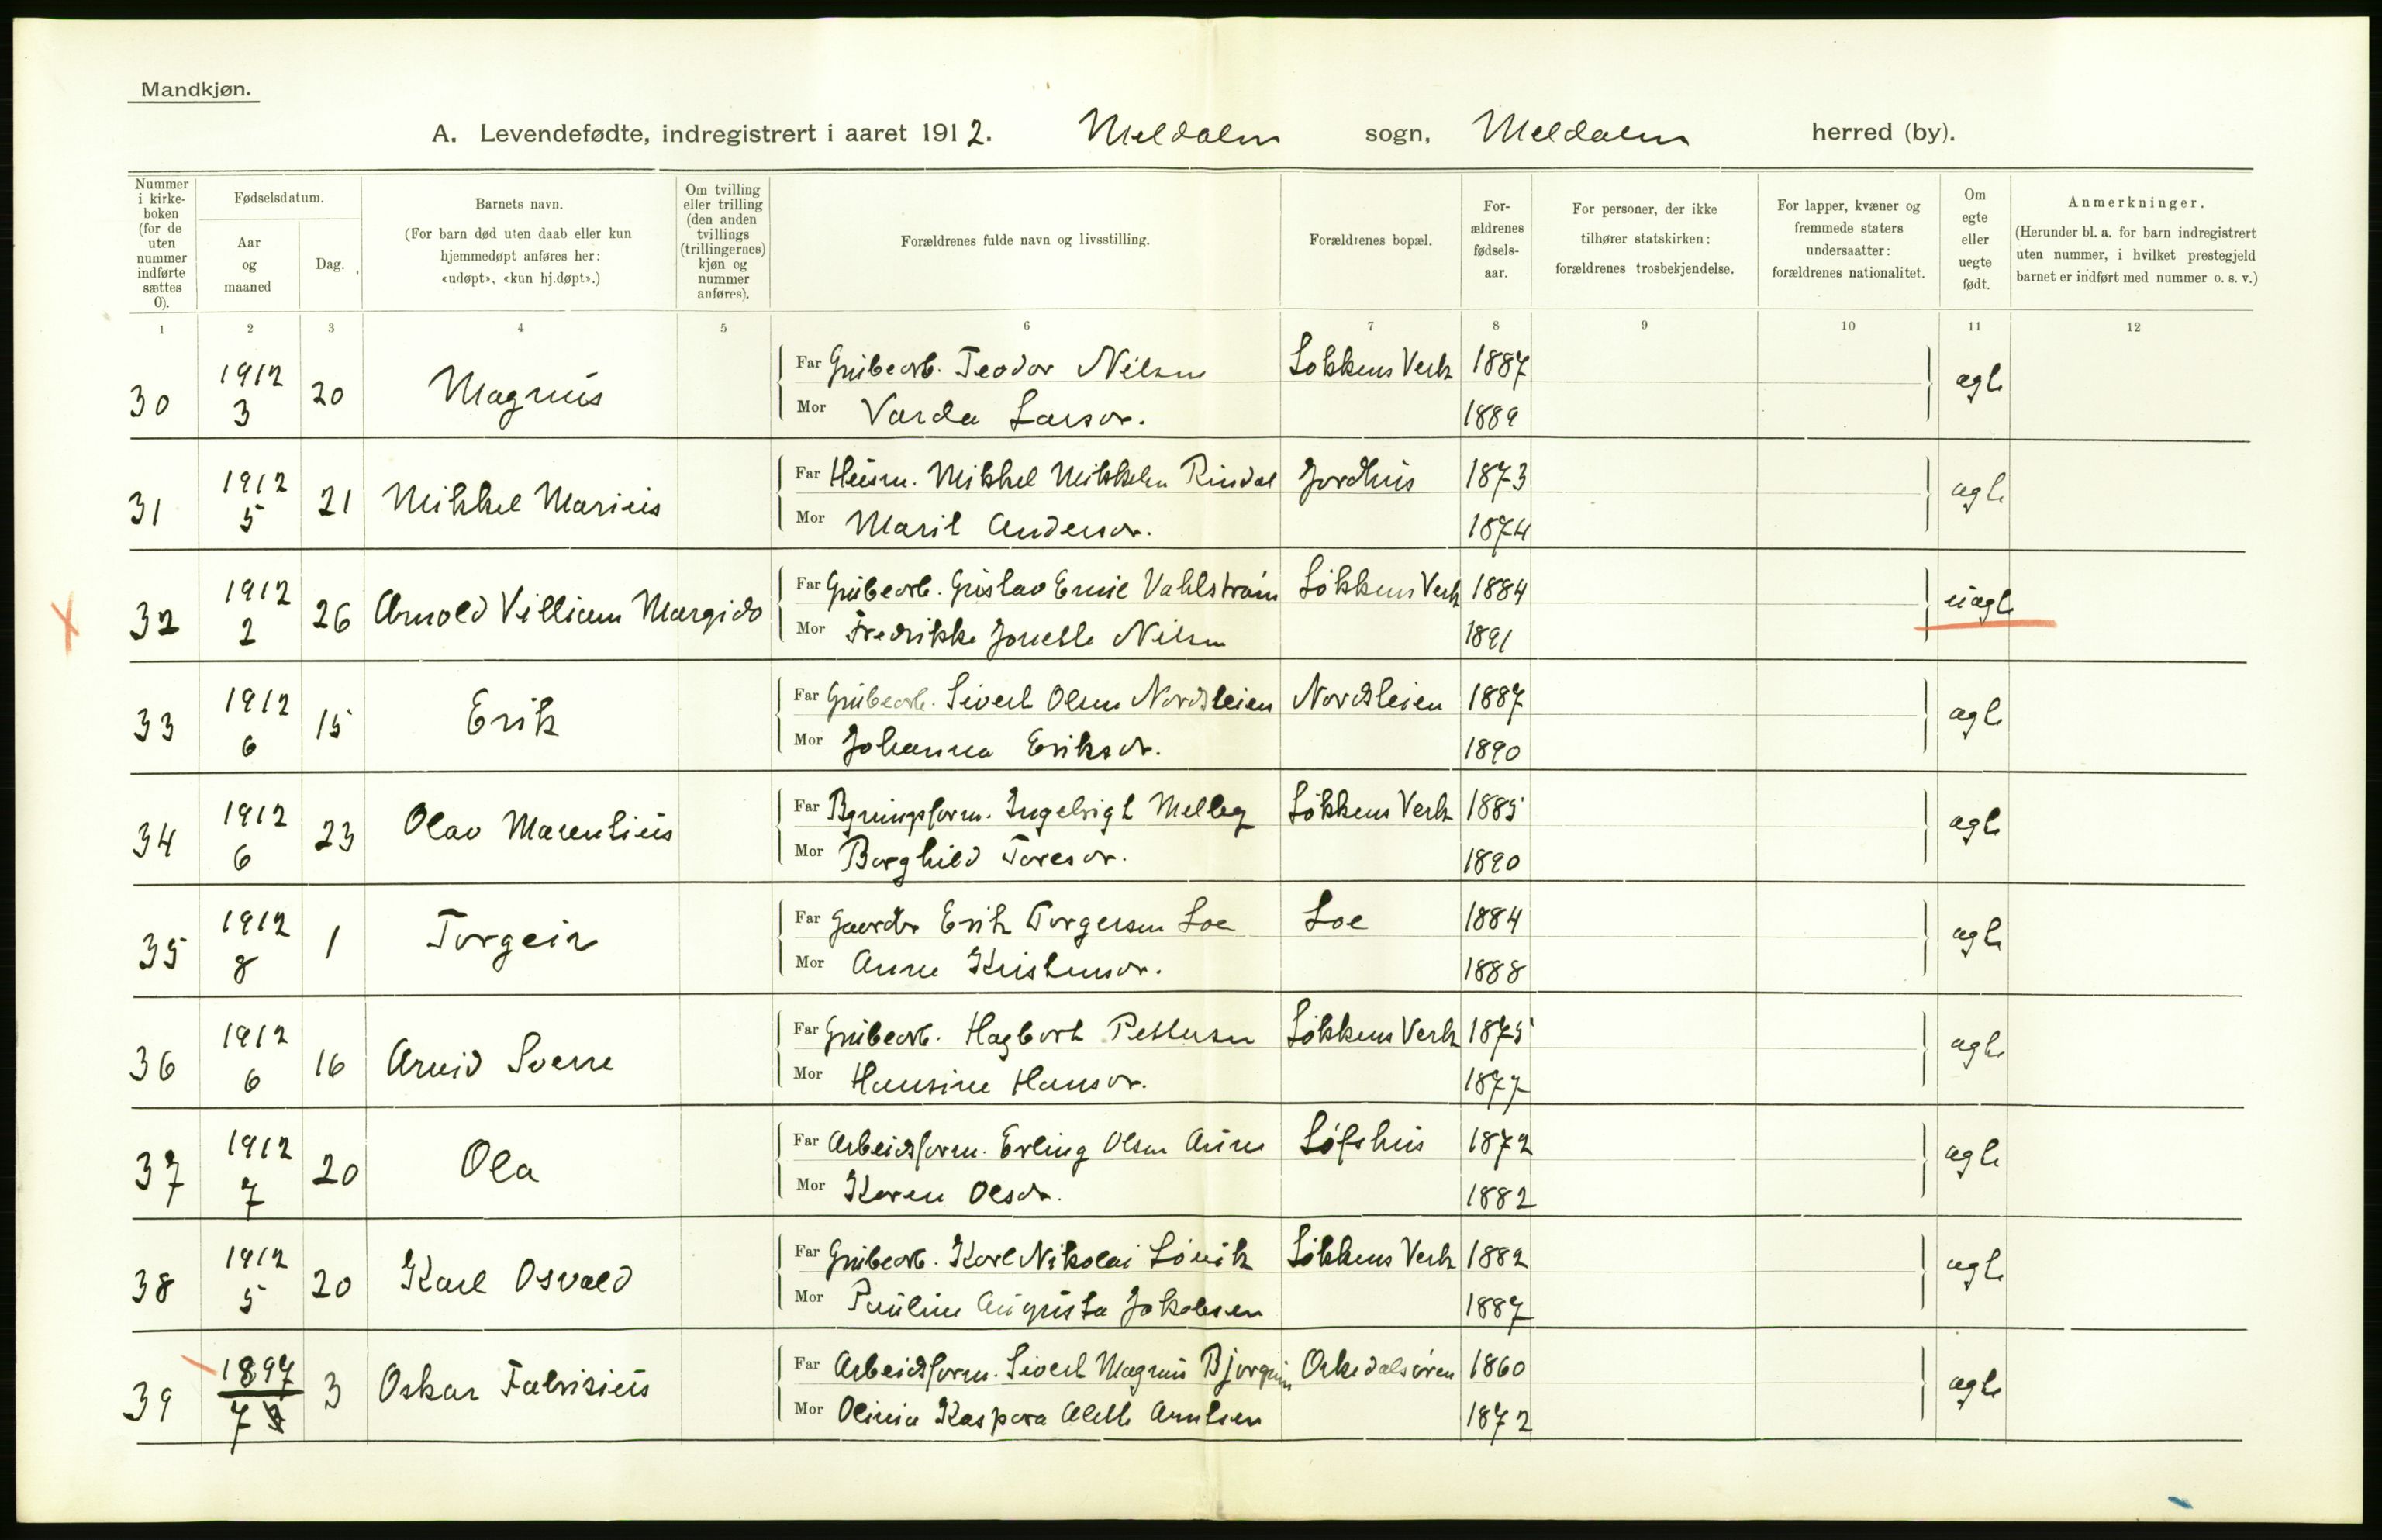 Mandkjøn.
A. Levendefødte, indregistrert i aaret 1912. Meldalen sogn, Meldalen herred (by).
Nummer i kirkeboken (for de uten nummer indførte sættes 0).
Fødselsdatum.
Aar og maaned
Dag.
Barnets navn.
(For barn død uten daab eller kun hjemmedøpt anføres her: «udøpt», «kun hj.døpt».)
Om tvilling eller trilling (den anden tvillings (trillingernes) kjøn og nummer anføres).
Forældrenes fulde navn og livsstilling.
Forældrenes bopæl.
Forældrenes fødselsaar.
For personer, der ikke tilhører statskirken: forældrenes trosbekjendelse.
For lapper, kvæner og fremmede staters undersaatter: forældrenes nationalitet.
Om egte eller uegte født.
Anmerkninger.
(Herunder bl. a. for barn indregistrert uten nummer, i hvilket prestegjeld barnet er indført med nummer o. s. v.)
1 2 3 4 5 6 7 8 9 10 11 12
30 1912 3 20 Magnus Far Grubearb. Teodor Nilsen Løkkens Verk 1887 ægte
Mor Varda Larsdr. 1889
31 1912 5 21 Mikkel Marius Far Husm. Mikkel Mikkelsen Rindal Jordhus 1873 ægte
Mor Marit Andersdr. 1874
32 1912 2 26 Arnold Villiam Margido Far Grubearb. Gustav Emil Vahlstrøm Løkkens Verk 1884 uægte
Mor Fredrikke Jonette Nilsen 1891
33 1912 6 15 Erik Far Grubearb. Sivert Olsen Nordsleien Nordsleien 1887 ægte
Mor Johanna Eriksdr. 1890
34 1912 6 23 Olav Marentius Far Bgningsform. Ingebrigt Melby Løkkens Verk 1885 ægte
Mor Borghild Toresdr. 1890
35 1912 8 1 Torgeir Far Gaardbr Erik Torgersen Loe Loe 1884 ægte
Mor Anne Kristensdr. 1888
36 1912 6 16 Arvid Sverre Far Grubearb. Hagbart Pettersen Løkkens Verk 1875 ægte
Mor Hansine Hansdr. 1877
37 1912 7 20 Ola Far Arbeidsform. Erling Olsen Aune Løfshus 1872 ægte
Mor Karen Olsdr. 1882
38 1912 5 20 Karl Osvald Far Grubearb. Karl Nikolai Løvik Løkkens Verk 1882 ægte
Mor Pauline Augusta Jakobsen 1887
39 1897 7 3 Oskar Fabrisius Far Arbeidsform. Sivert Magnus Bjørgum Orkedalsøren 1860 ægte
Mor Olivia Kaspara Alette Arntsen 1872